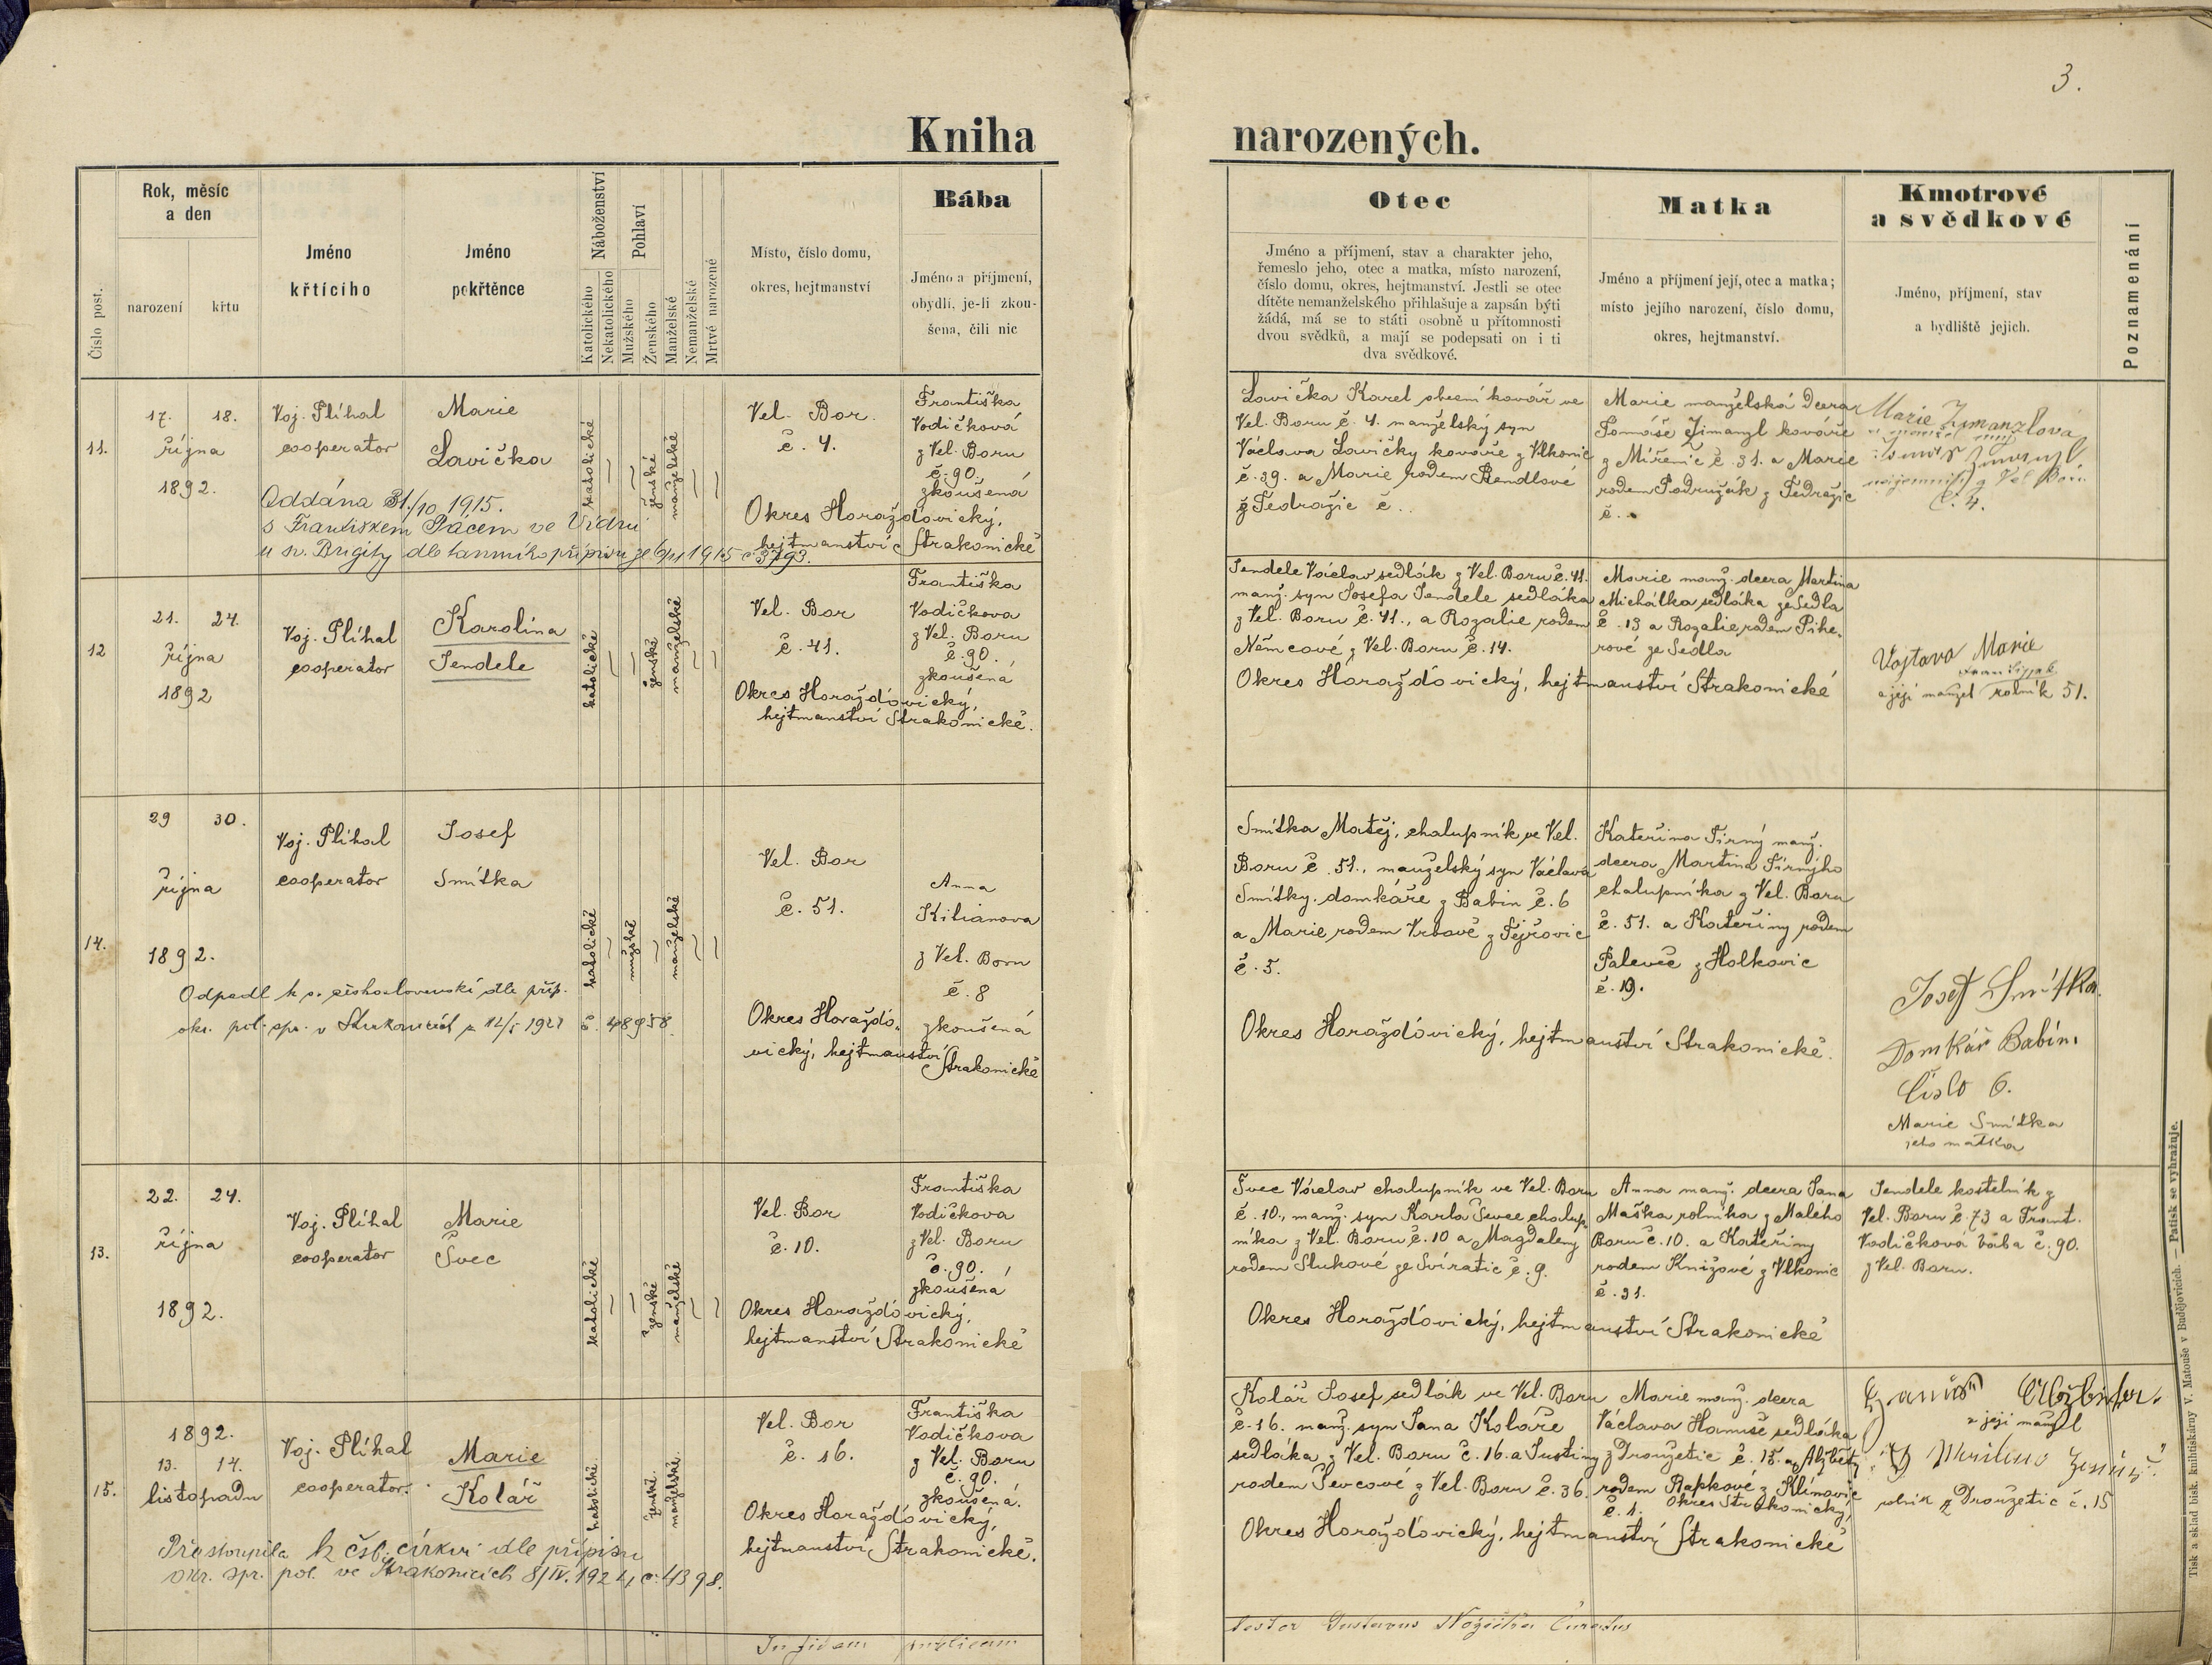 3.
Kniha narozených.
Číslo post.
Rok, měsíc
a den
narození
křtu
Jméno
křtícího
Jméno
pokřtěnce
Náboženství
Katolického
Nekatolického
Pohlaví
Mužského
Ženského
Manželské
Nemanželské
Mrtvě narozené
Místo, číslo domu,
okres, hejtmanství
Bába
Jméno a příjmení,
obydlí, je-li zkou-
šena, čili nic
Otec
Jméno a příjmení, stav a charakter jeho,
řemeslo jeho, otec a matka, místo narození,
číslo domu, okres, hejtmanství. Jestli se otec
dítěte nemanželského přihlašuje a zapsán býti
žádá, má se to státi osobně u přítomnosti
dvou svědků, a mají se podepsati on i ti
dva svědkové.
Matka
Jméno a příjmení její, otec a matka;
místo jejího narození, číslo domu,
okres, hejtmanství.
Kmotrové
a svědkové
Jméno, příjmení, stav
a bydliště jejich.
Poznamenání
11.
17. 18.
října
1892.
Voj. Plíhal
cooperator
Marie
Lavička
katolické
ženské
manželské
Vel. Bor.
č. 4.
Okres Horažďovický,
hejtmanství Strakonické
Františka
Vodičková
z Vel. Boru
č. 90.
zkoušená
Oddána 31./10 1915.
s Františkem Pácem ve Vídni
u sv. Brigity dle tamního přípisu ze 6/11 1915 č 3793.
Lavička Karel obecní kovář ve
Vel. Boru č. 4. manželský syn
Václava Lavičky kováře z Vlkonic
č. 39. a Marie rodem Bendlové
z Tedražic č..
Marie manželská dcera
Tomáše Zimanzl kováře
z Miřenic č. 31. a Marie
rodem Podružák z Tedražic
č..
Marie Zimanzlová
z Vel Boru
č. 4.
12
21. 24.
října
1892
Voj. Plíhal
cooperator
Karolina
Jendele
katolické
ženské
manželské
Vel. Bor
č. 41.
Okres Horažďovický,
hejtmanství Strakonické.
Františka
Vodičkova
z Vel. Boru
č. 90.
zkoušená
Jendele Václav sedlák z Vel. Boru č. 41.
manž. syn Josefa Jendele sedláka
z Vel. Boru č. 41., a Rozalie rodem
Němcové z Vel. Boru č. 14.
Okres Horažďovický, hejtmanství Strakonické
Marie manž. dcera Martina
Michálka sedláka ze Sedla
č. 13 a Rozalie rodem Pihe-
rové ze Sedla
Vojtava Marie
a její manžel rolník 51.
14.
29 30.
října
1892.
Voj. Plíhal
cooperator
Josef
Smitka
katolické
mužské
manželské
Vel. Bor
č. 51.
Okres Horažďo-
vický, hejtmanství
Strakonické
Anna
Kilianova
z Vel. Boru
č. 8
zkoušená
Odpadl k s. československé dle příp.
okr. pol. spr. v Strakonicích z 12/5 1921 č. 48958.
Smitka Matěj, chalupník ve Vel.
Boru č. 51., manželský syn Václava
Smitky domkáře z Babin č. 6
a Marie rodem Vrbové z Tejřovic
č. 5.
Okres Horažďovický, hejtmanství Strakonické.
Kateřina Širný manž.
dcera Martina Širnýho
chalupníka z Vel. Boru
č. 51. a Kateřiny rodem
Paleveč z Holkovic
č. 19.
Josef Smitka
Domkář Babín.
číslo 6.
Marie Smitka
jeho matka
13.
22. 24.
října
1892.
Voj. Plíhal
cooperator
Marie
Švec
katolické
ženské
manželské
Vel. Bor
č. 10.
Okres Horažďovický,
hejtmanství Strakonické
Františka
Vodičkova
z Vel. Boru
č. 90.
zkoušená
Švec Václav chalupník ve Vel. Boru
č. 10., manž. syn Karla Švece chalup-
níka z Vel. Boru č. 10 a Magdaleny
rodem Slukové ze Svíratic č. 9.
Okres Horažďovický, hejtmanství Strakonické
Anna manž. dcera Jana
Maška rolníka z Malého
Boru č. 10. a Kateřiny
rodem Knížové z Vlkonic
č. 31.
Jendele kostelník z
Vel. Boru č. 73 a Frant.
Vodičková bába č. 90.
z Vel. Boru.
15.
1892.
13. 14.
listopadu
Voj. Plíhal
cooperator.
Marie
Kolář
katolické.
ženské.
manželské.
Vel. Bor
č. 16.
Okres Horažďovický,
hejtmanství Strakonické.
Františka
Vodičkova
z Vel. Boru
č. 90.
zkoušená.
Přestoupila k čsl. církvi dle přípisu
okr. spr. pol. ve Strakonicích 8/IV. 1924 č. 4398.
Kolář Josef sedlák ve Vel. Boru
č. 16. manž. syn Jana Koláře
sedláka z Vel. Boru č. 16. a Justiny
rodem Ševcové z Vel. Boru č. 36.
Okres Horažďovický, hejtmanství Strakonické
Marie manž. dcera
Václava Hanuše sedláka
z Droužetic č. 15. a Alžběty
rodem Rapkové z Klínovic
č. 1. Okres Strakonický,
a její manžel
rolník z Droužetic č. 15
In fidem publicam
testor Gustavus Nožička Curatus
Tisk a sklad bisk. knihtiskárny V. Matouše v Budějovicích. — Patisk se vyhražuje.